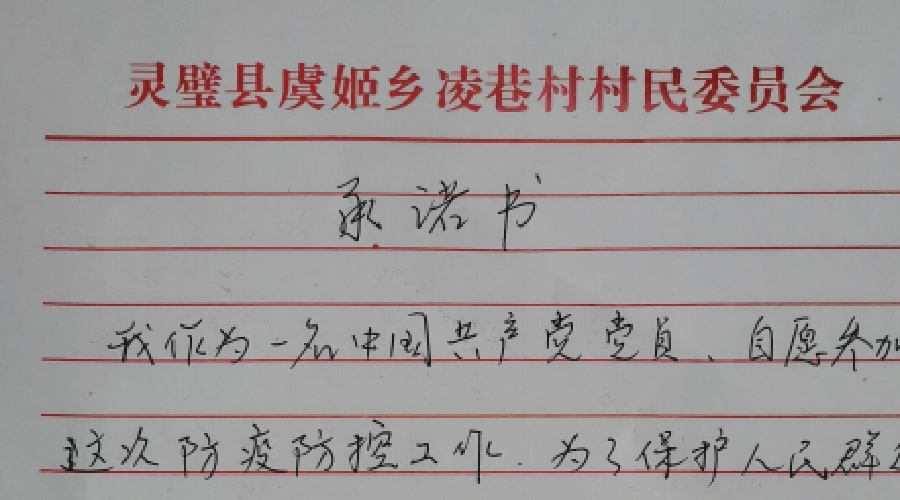 灵璧县虞姬乡凌巷村村民委员会
承诺书
我作为一名中国共产党党员、自愿参加
这次防疫防控工作.为了保护人民群